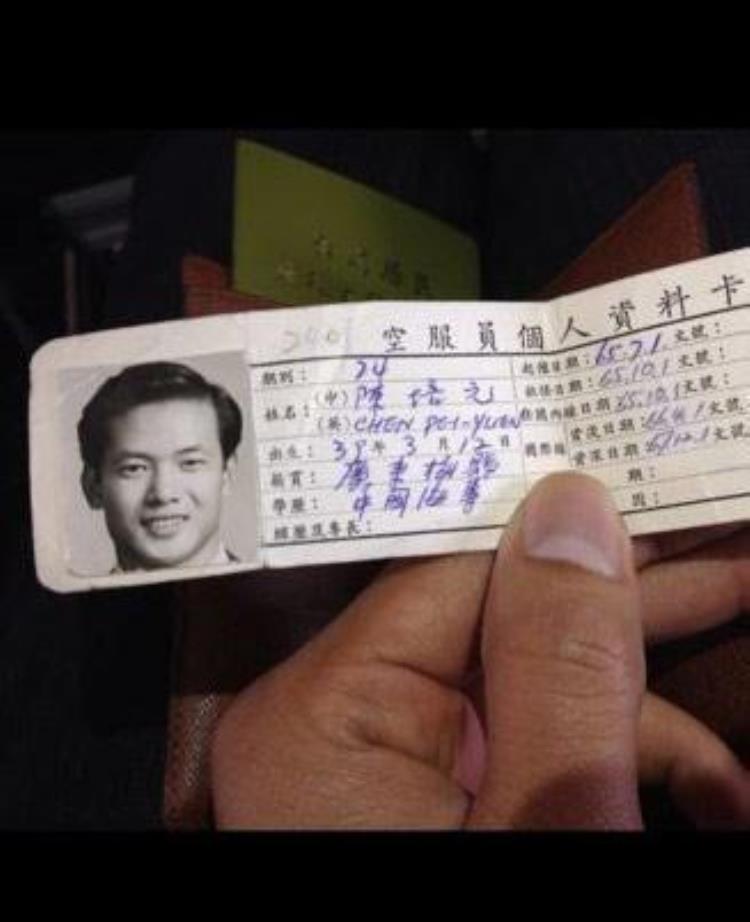 空服員個人資料卡
期別：24
姓名：(中) 陳培元
(英) CHEN PEI-YUEN
出生：39年3月12日
籍貫：廣東梅縣
學歷：中國海專
經歷及專長：
日期：65.7.1 文號：
日期：65.10.1 文號：
國內線日期 65.10.1 文號：
國際線
日期：66.4.1 文號：
日期： 文號
期：
因：